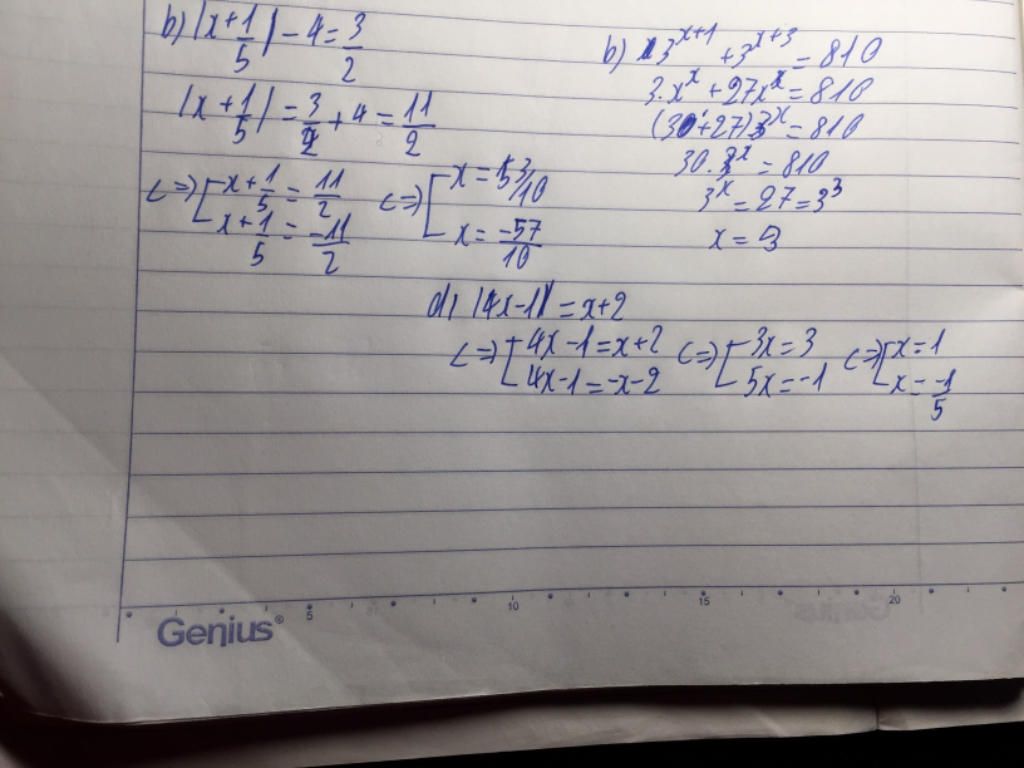 b) |x + 1/5| - 4 = 3/2
|x + 1/5| = 3/2 + 4 = 11/2
<=> [ x + 1/5 = 11/2 <=> [ x = 53/10
x + 1/5 = -11/2 x = -57/10
b) 3^x+1 + 3^x+3 = 810
3.x^x + 27x^x = 810
(3 + 27) 3^x = 810
30.3^x = 810
3^x = 27 = 3^3
x = 3
d) |4x - 1| = x + 2
<=> [ 4x - 1 = x + 2 <=> [ 3x = 3 <=> [ x = 1
4x - 1 = -x - 2 5x = -1 x = -1/5
5 10 15 20
Genius®